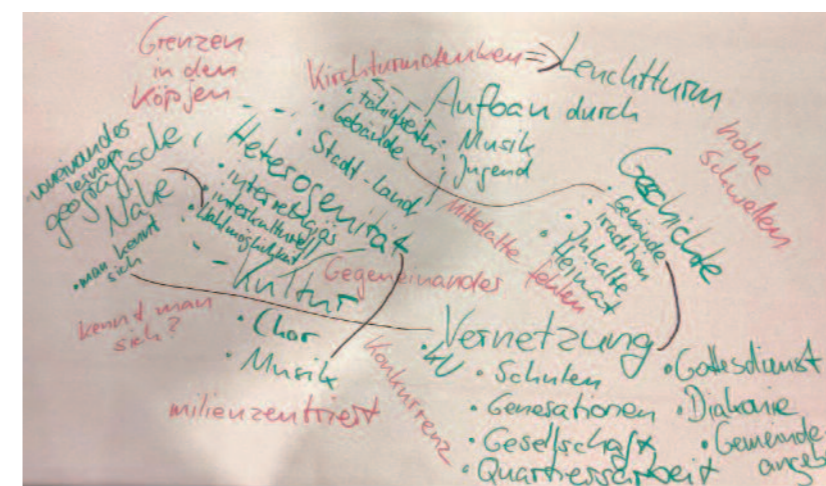 Grenzen
in den
Köpfen
Kirchturmdenken => Leuchtturm
Aufbau durch
• Musik
• Jugend
• Fähigkeiten
• Gebäude
• Stadt-Land
hohe
Schwellen
voneinander
lernen
geografische
Nähe
• man kennt
sich
kennt man
sich?
Heterogenität
• interreligiös
• interkulturell
• Wahlmöglichkeit
Geschichte
• Gebäude
• Tradition
• Inhalte
• Heimat
Mittelalte fehlen
Gegeneinander
- Kultur
• Chor
• Musik
milieuzentriert
Konkurrenz
Vernetzung
• KV
• Schulen
• Generationen
• Gesellschaft
• Quartiersarbeit
• Gottesdienst
• Diakonie
• Gemeinde-
angeb